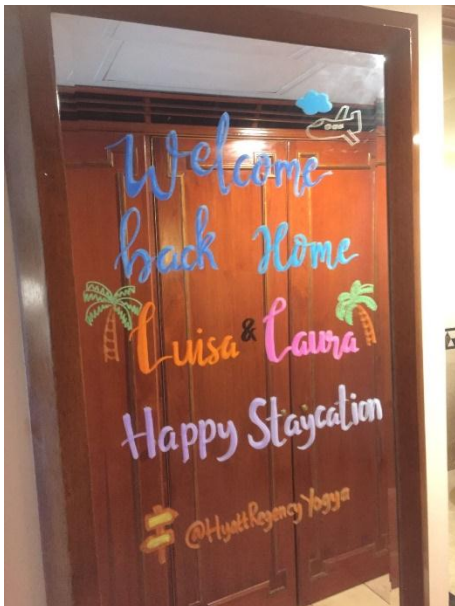 Welcome
back Home
Luisa & Laura
Happy Staycation
@HyattRegency Yogya